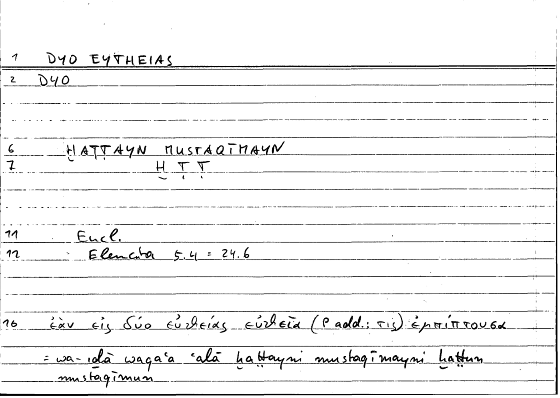 1 DYO EYTHEIAS
2 DYO
6 ḪAṬṬAYN MUSTAQĪMAYN
7 Ḫ Ṭ Ṭ
11 Eucl.
12 Elementa 5.4 = 24.6
16 ἐὰν εἰς δύο εὐθείας εὐθεῖα (P add.: τις) ἐμπίπτουσα
= wa-iḏā waqaʿa ʿalā ḫaṭṭayni mustaqīmayni ḫaṭṭun
mustaqīmun